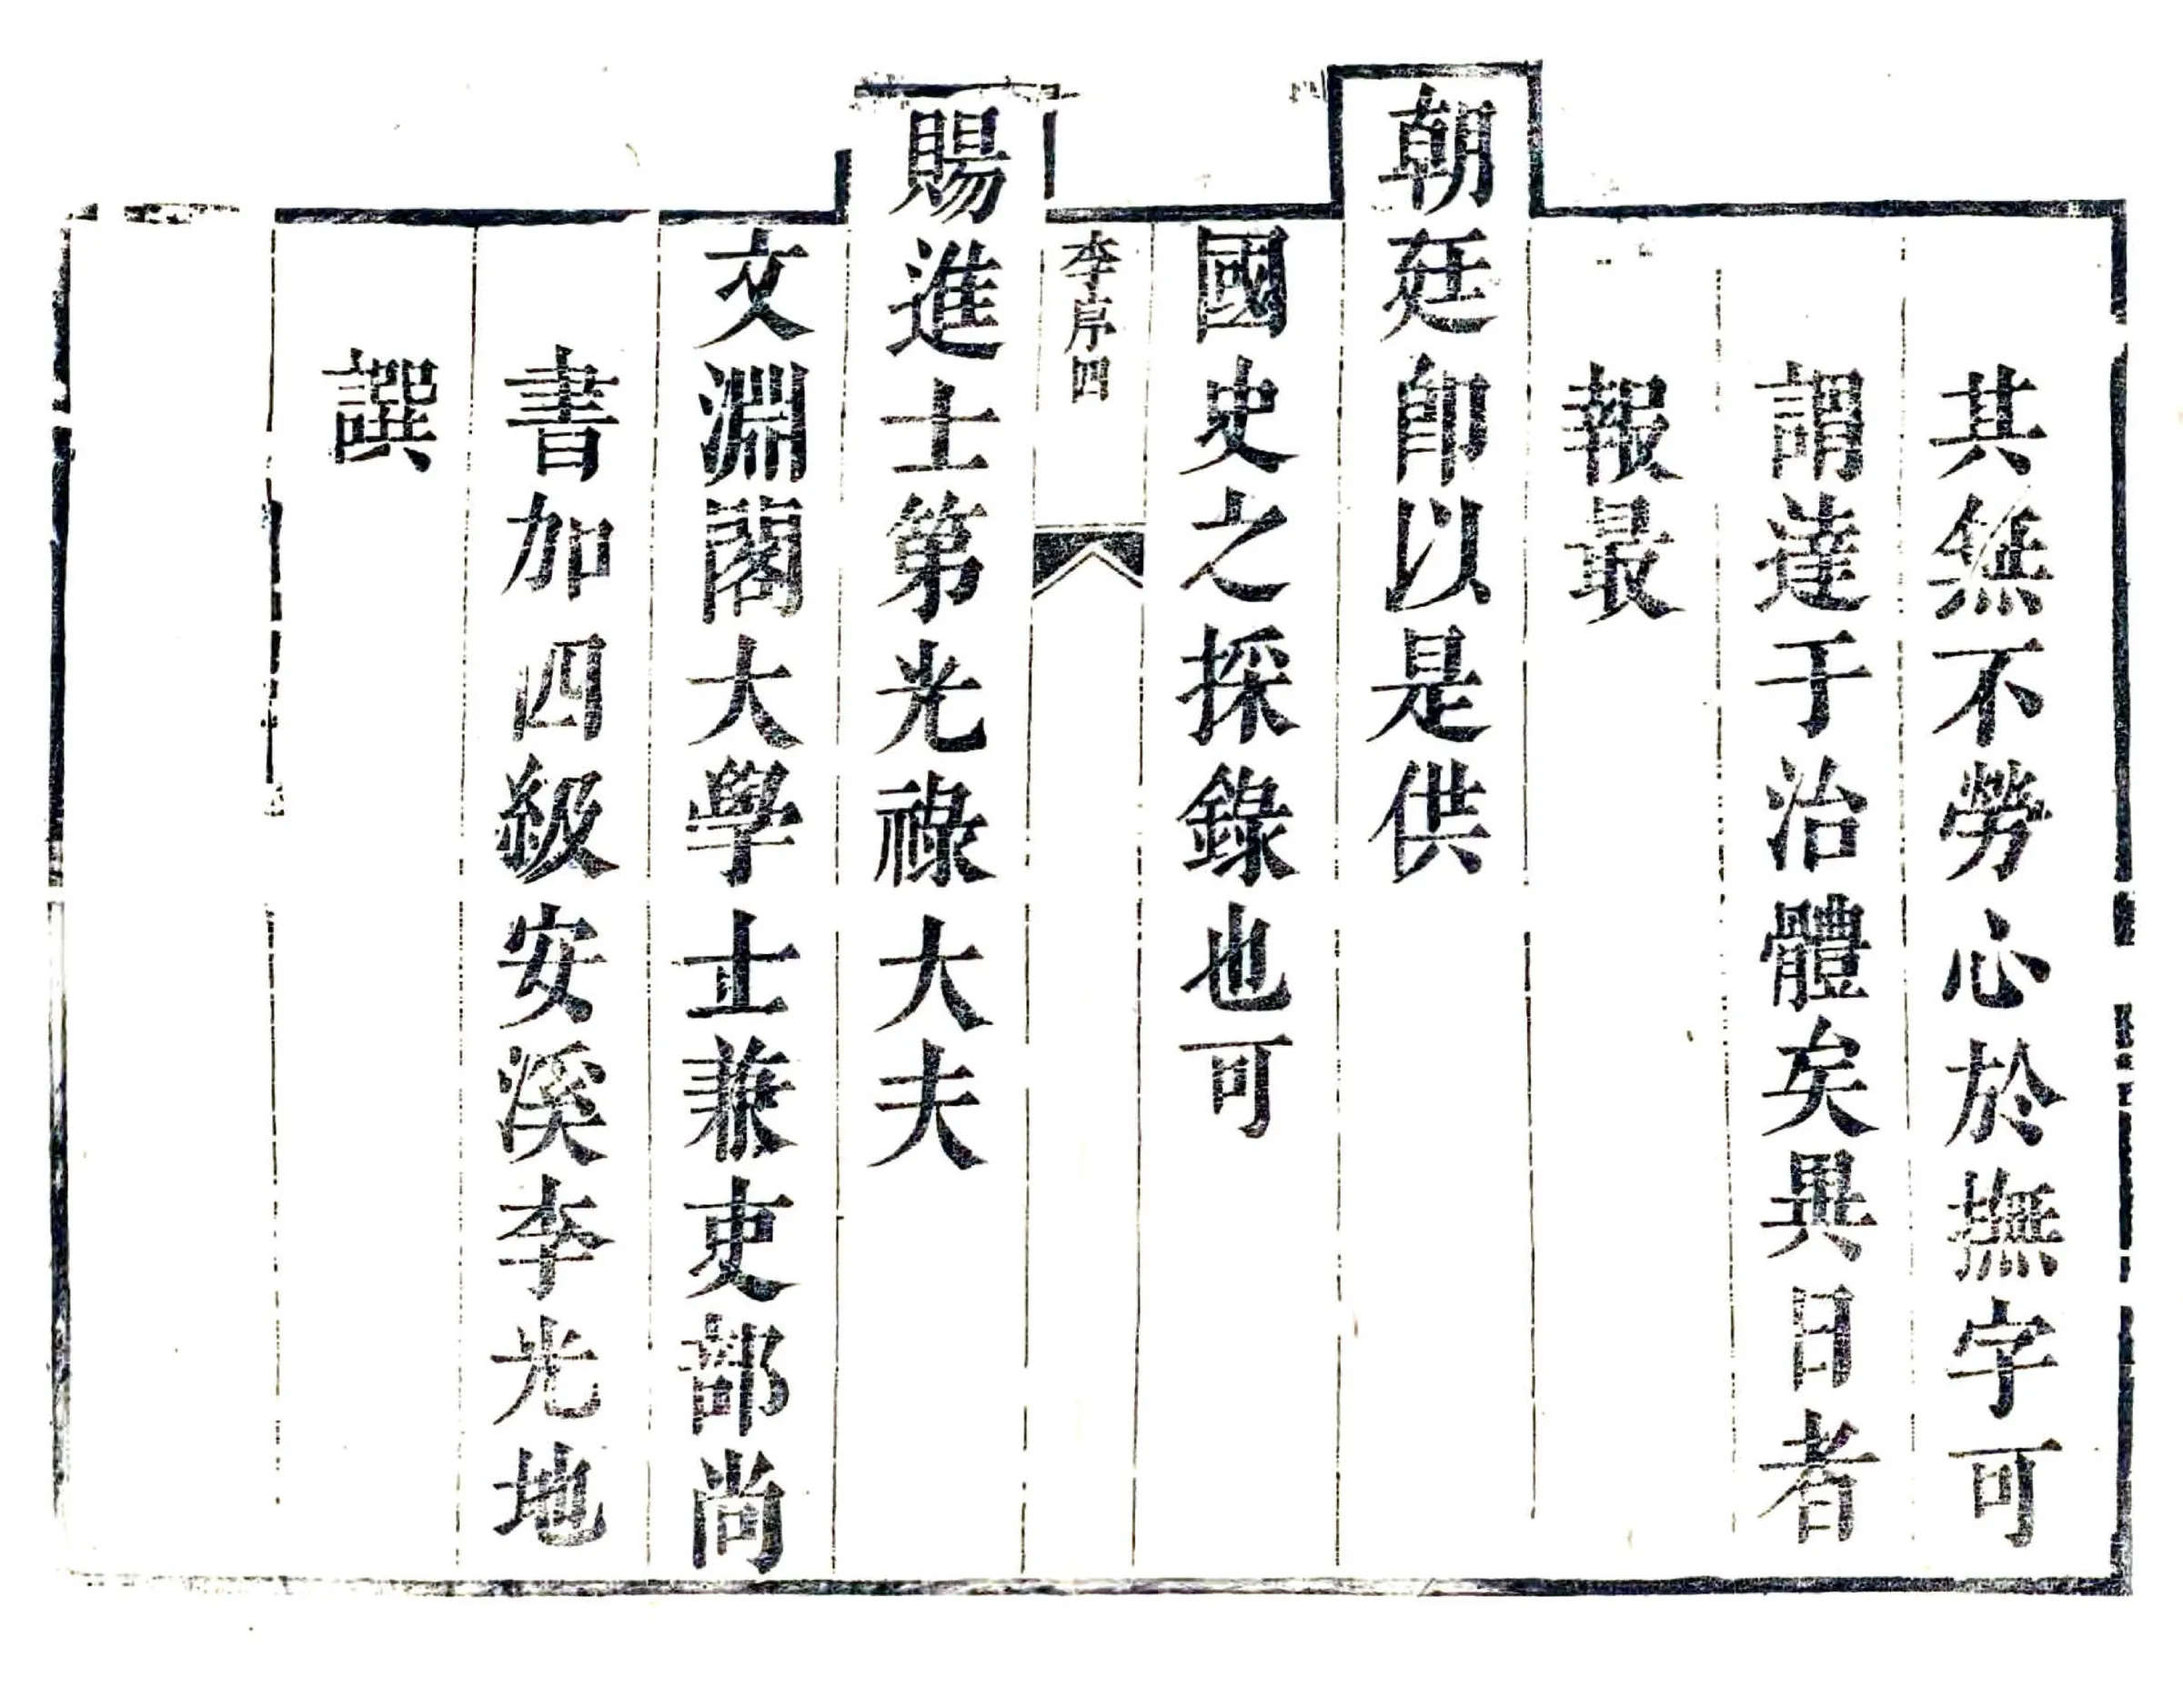 其無不勞心於撫字可
謂達于治體矣異日者
報最
朝廷卽以是供
國史之採錄也可
李序四
賜進士第光祿大夫
文淵閣大學士兼吏部尚
書加四級安溪李光地
譔